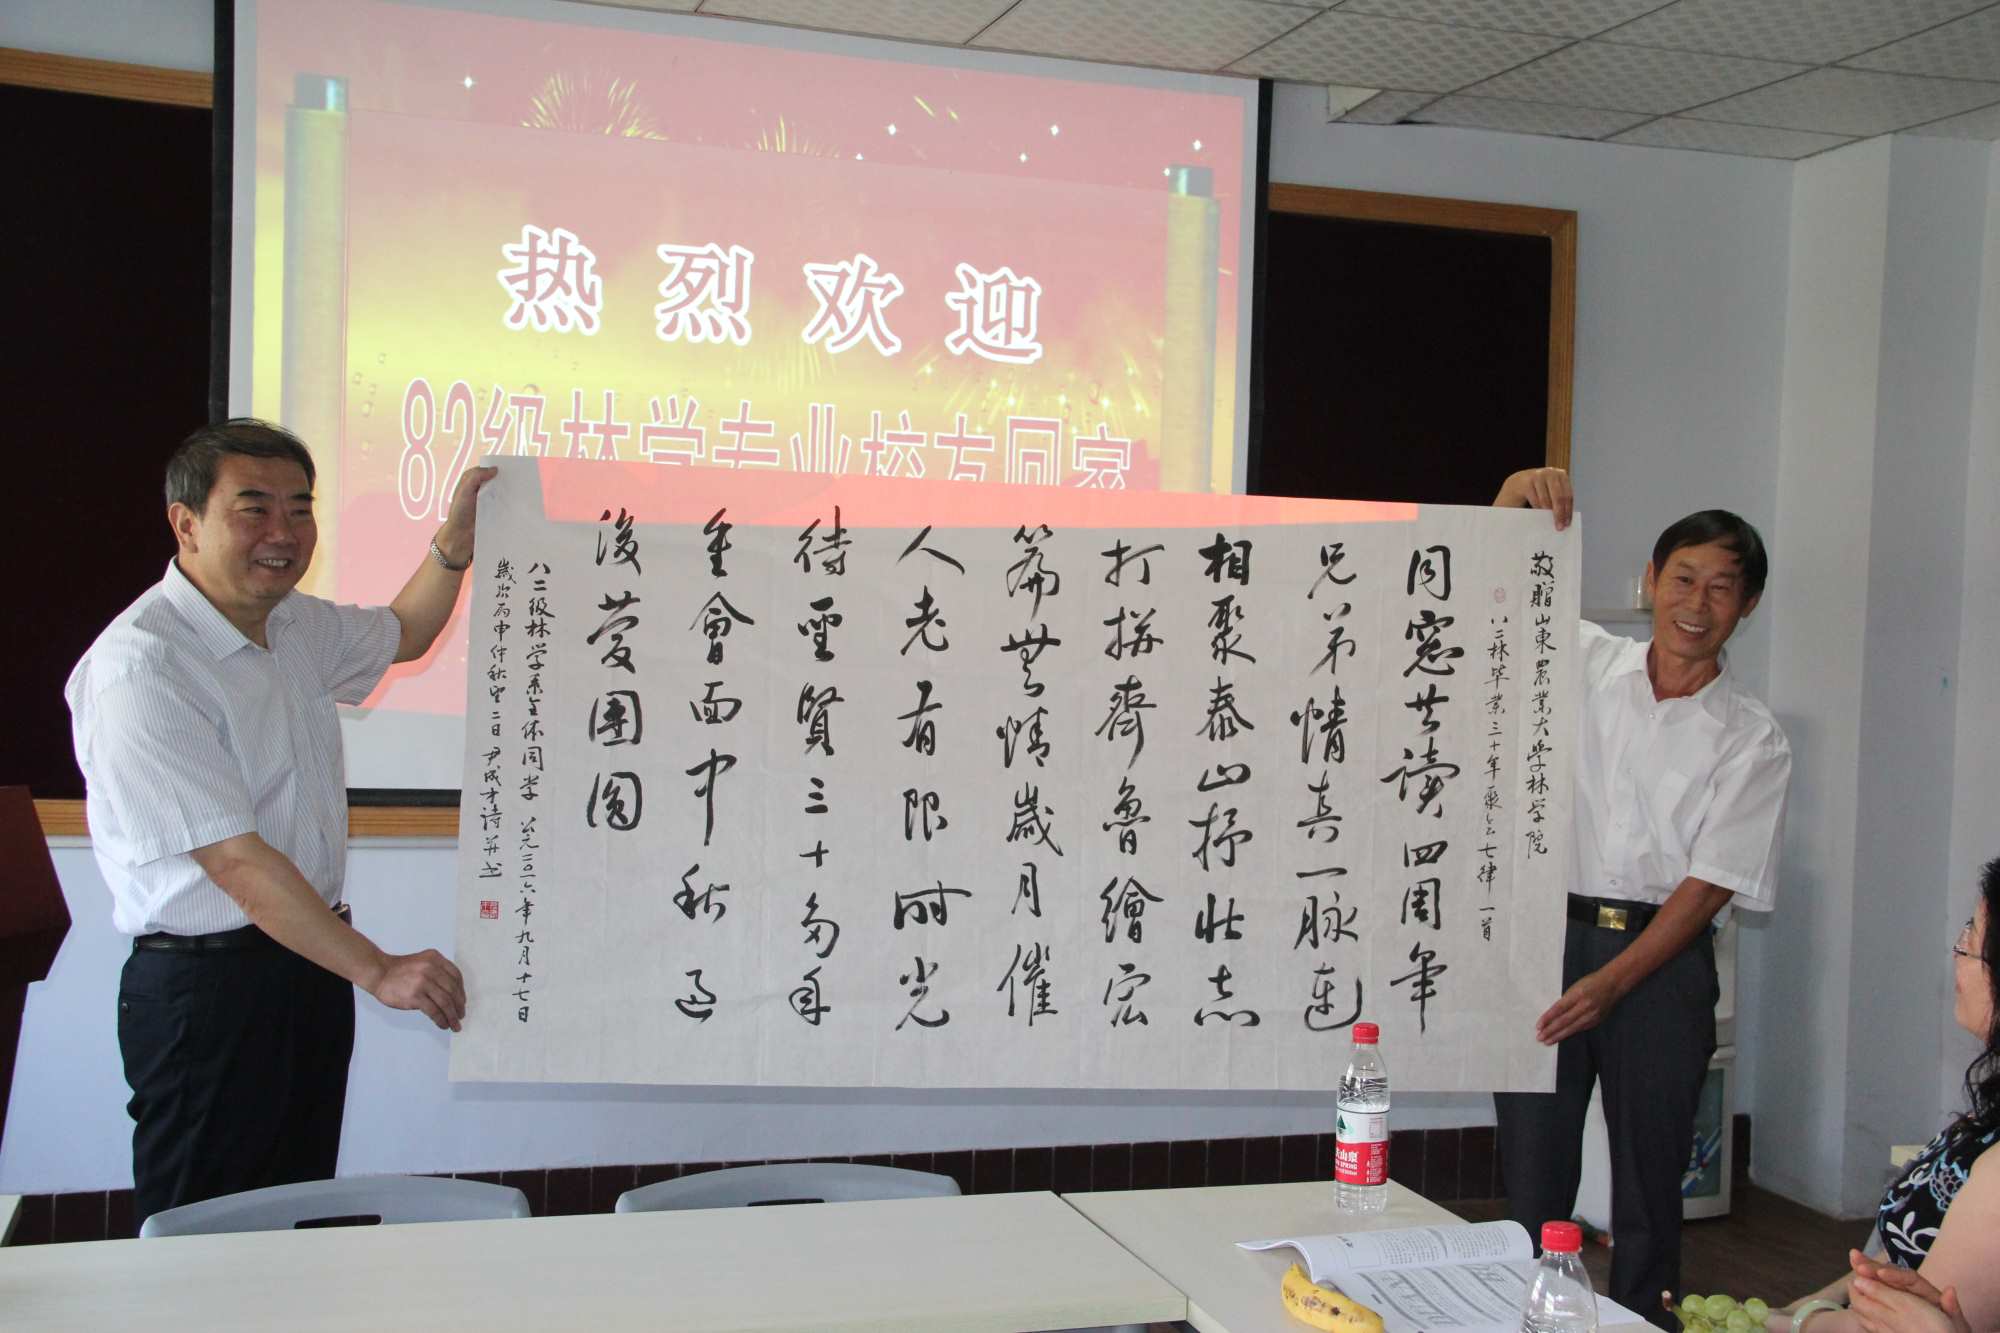 热烈欢迎
82级林学专业校友回家
敬贈山東農業大学林学院
八二林毕业三十年聚会七律一首
同窓共读四周年
兄弟情真一脉连
相聚泰山抒壮志
打拼齊魯繪宏
篇無情歲月催
人老有限时光
待聖賢三十多年
重會面中秋過
後蔓團圆
八二级林学系全体同学 公元二〇一六年九月十七日
歲次丙申仲秋望二日 尹成才詩并书